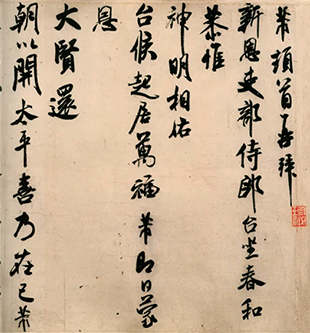 芾頓首再拜
新恩吏部侍郎台坐春和
恭惟
神明相佑
台候起居萬福芾即日蒙
恩
大賢還
朝以開太平喜乃在己芾